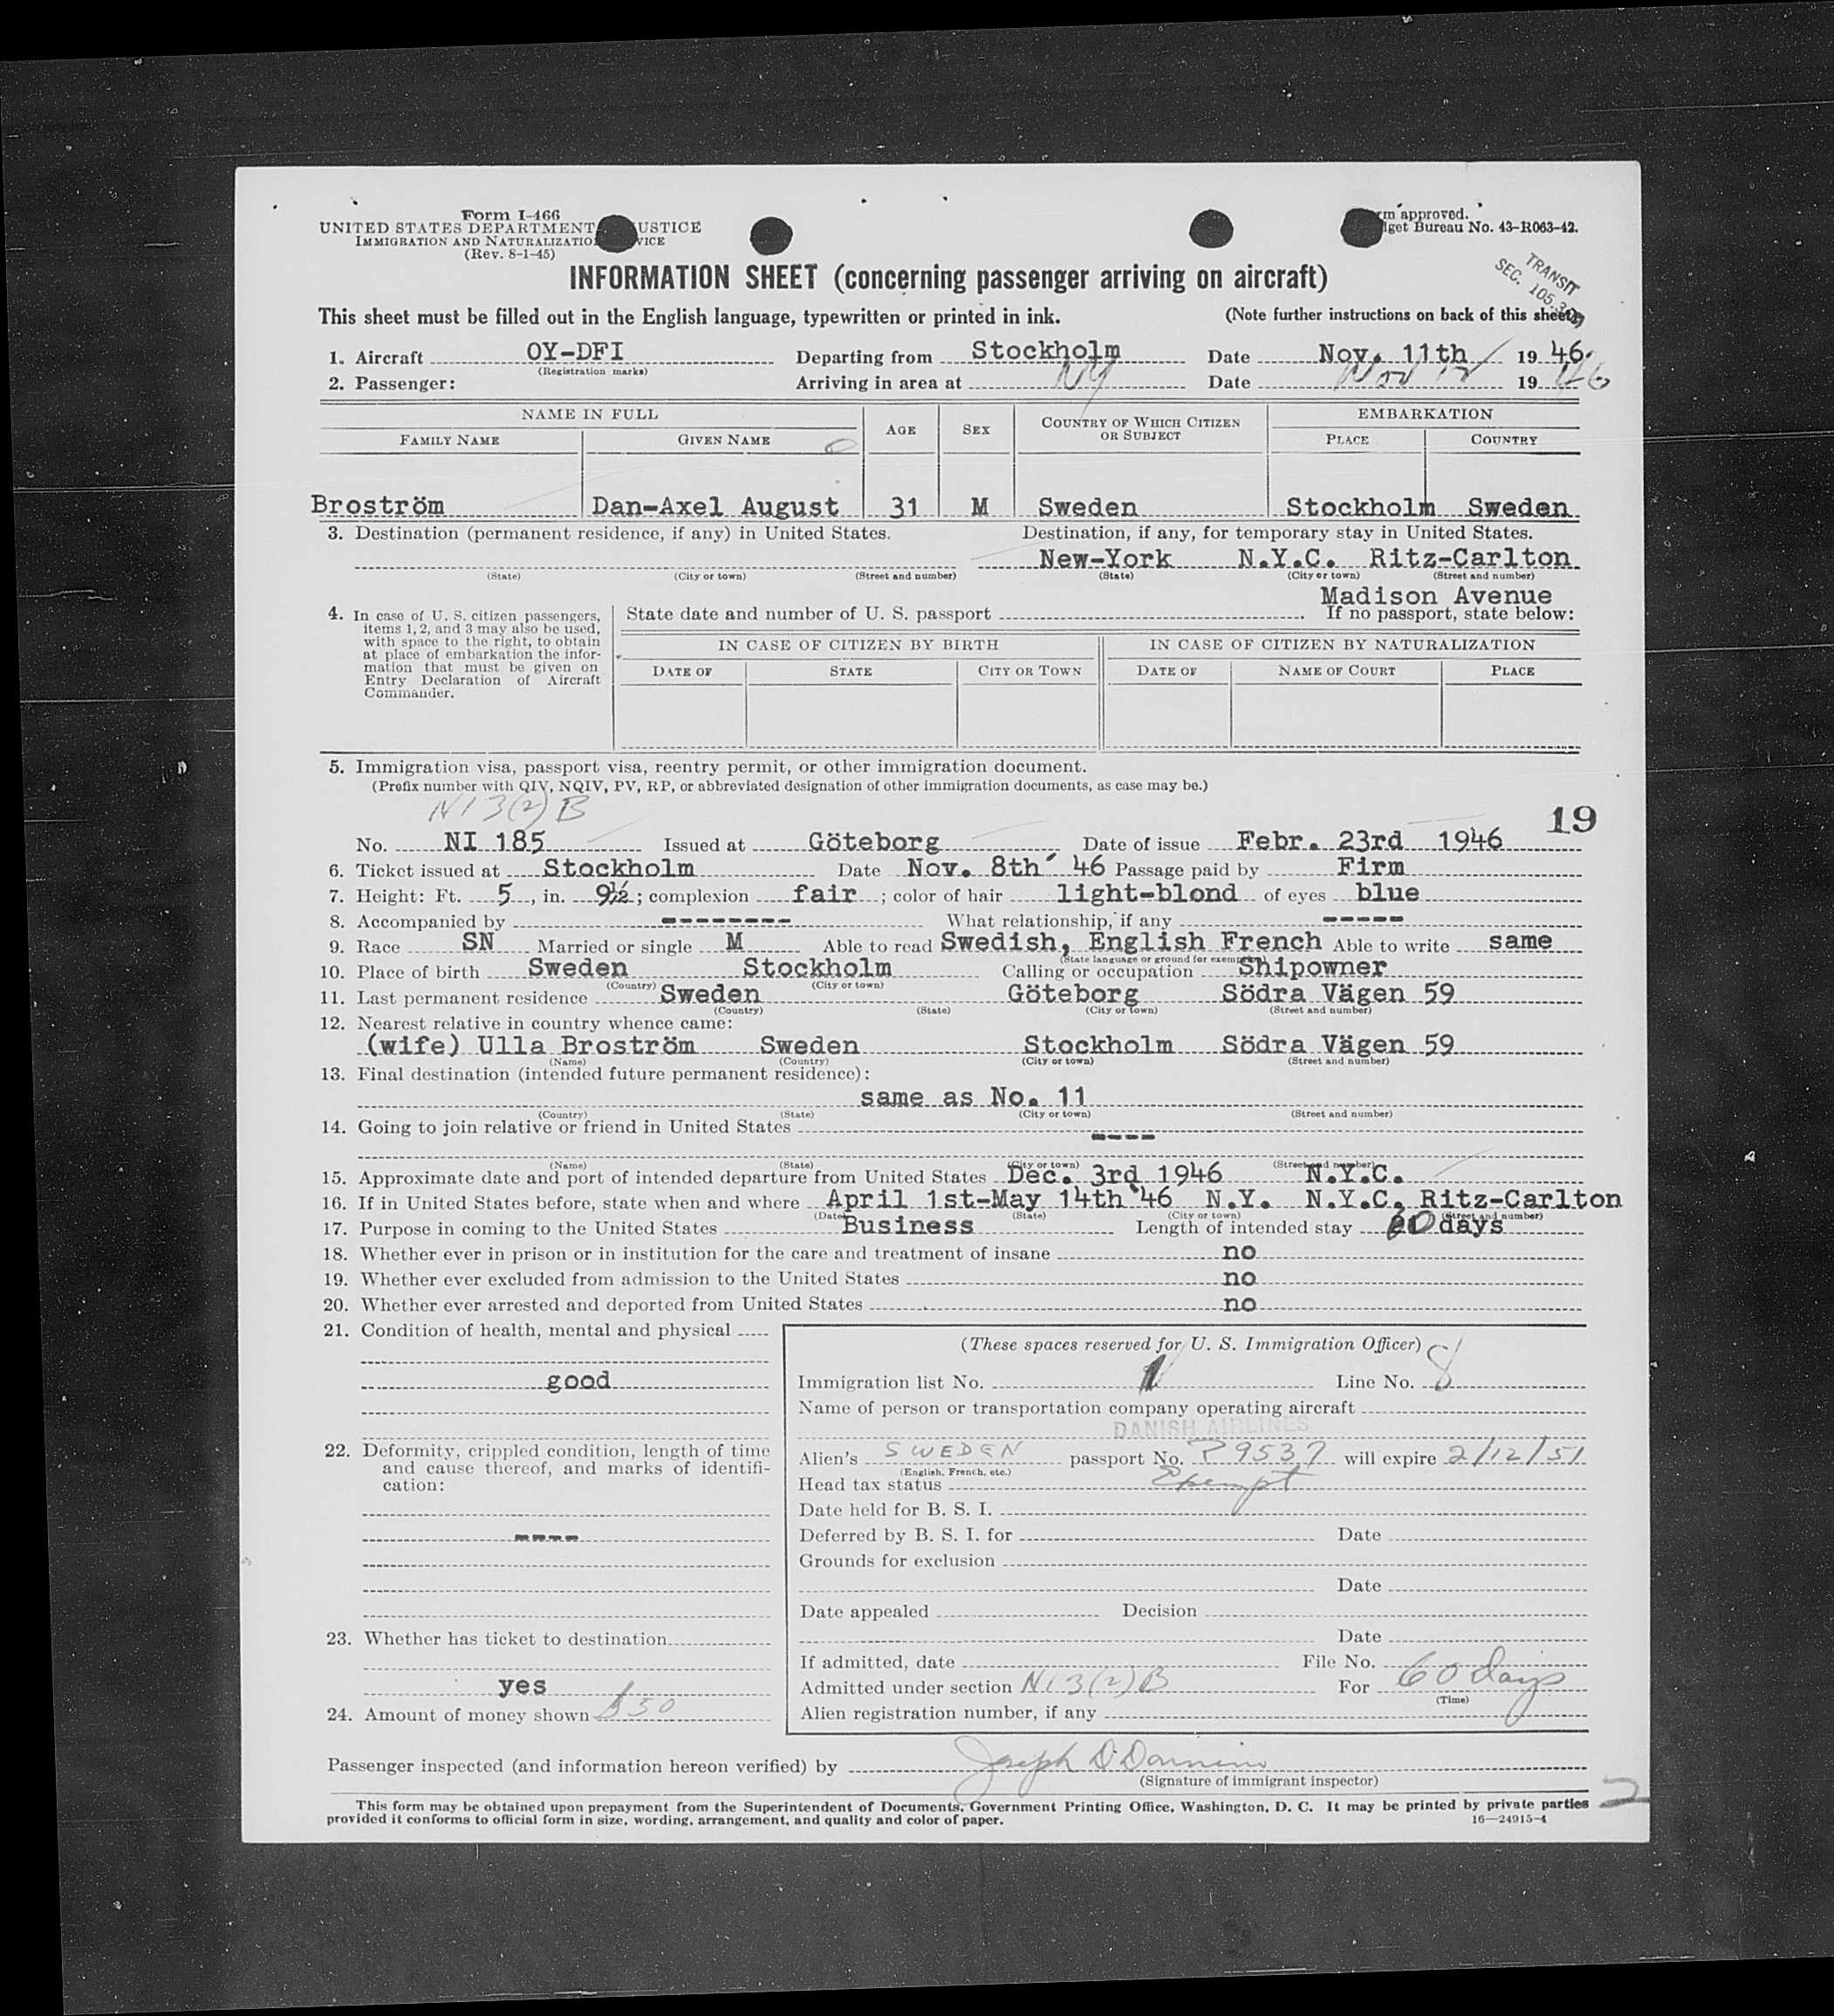 Form I-466
UNITED STATES DEPARTMENT USTICE
IMMIGRATION AND NATURALIZATIO VICE
(Rev. 8-1-45)
rm approved.
get Bureau No. 43-R063-42.
TRANSIT
SEC. 105.3
INFORMATION SHEET (concerning passenger arriving on aircraft)
This sheet must be filled out in the English language, typewritten or printed in ink. (Note further instructions on back of this sheet)
1. Aircraft OY-DFI Departing from Stockholm Date Nov. 11th 1946.
(Registration marks)
2. Passenger: Arriving in area at NY Date Nov 12 1946
NAME IN FULL AGE SEX COUNTRY OF WHICH CITIZEN OR SUBJECT EMBARKATION
FAMILY NAME GIVEN NAME PLACE COUNTRY
Broström Dan-Axel August 31 M Sweden Stockholm Sweden
3. Destination (permanent residence, if any) in United States. Destination, if any, for temporary stay in United States.
New-York N.Y.C. Ritz-Carlton
(State) (City or town) (Street and number) (State) (City or town) (Street and number)
Madison Avenue
4. In case of U. S. citizen passengers, items 1, 2, and 3 may also be used, with space to the right, to obtain at place of embarkation the information that must be given on Entry Declaration of Aircraft Commander.
State date and number of U. S. passport If no passport, state below:
IN CASE OF CITIZEN BY BIRTH IN CASE OF CITIZEN BY NATURALIZATION
DATE OF STATE CITY OR TOWN DATE OF NAME OF COURT PLACE
5. Immigration visa, passport visa, reentry permit, or other immigration document.
(Prefix number with QIV, NQIV, PV, RP, or abbreviated designation of other immigration documents, as case may be.)
NI 3(2) B
19
No. NI 185 Issued at Göteborg Date of issue Febr. 23rd 1946
6. Ticket issued at Stockholm Date Nov. 8th' 46 Passage paid by Firm
7. Height: Ft. 5, in. 9½; complexion fair; color of hair light-blond of eyes blue
8. Accompanied by -------- What relationship, if any -----
9. Race SN Married or single M Able to read Swedish, English French Able to write same
(State language or ground for exemption)
10. Place of birth Sweden Stockholm Calling or occupation Shipowner
(Country) (City or town)
11. Last permanent residence Sweden Göteborg Södra Vägen 59
(Country) (State) (City or town) (Street and number)
12. Nearest relative in country whence came:
(wife) Ulla Broström Sweden Stockholm Södra Vägen 59
(Name) (Country) (City or town) (Street and number)
13. Final destination (intended future permanent residence):
same as No. 11
(Country) (State) (City or town) (Street and number)
14. Going to join relative or friend in United States ----
(Name) (State) (City or town) (Street and number)
15. Approximate date and port of intended departure from United States Dec. 3rd 1946 N.Y.C.
16. If in United States before, state when and where April 1st-May 14th '46 N.Y. N.Y.C. Ritz-Carlton
(Date) (State) (City or town) (Street and number)
17. Purpose in coming to the United States Business Length of intended stay 60 days
18. Whether ever in prison or in institution for the care and treatment of insane no
19. Whether ever excluded from admission to the United States no
20. Whether ever arrested and deported from United States no
21. Condition of health, mental and physical
good
22. Deformity, crippled condition, length of time and cause thereof, and marks of identification:
----
23. Whether has ticket to destination
yes
24. Amount of money shown $50
(These spaces reserved for U. S. Immigration Officer)
Immigration list No. 1 Line No. 8
Name of person or transportation company operating aircraft
DANISH AIRLINES
Alien's SWEDEN passport No. P9537 will expire 2/12/51
(English, French, etc.)
Head tax status Exempt
Date held for B. S. I.
Deferred by B. S. I. for Date
Grounds for exclusion
Date
Date appealed Decision
Date
If admitted, date File No.
Admitted under section NI 3(2) B For 60 days
(Time)
Alien registration number, if any
Passenger inspected (and information hereon verified) by Joseph D
(Signature of immigrant inspector)
2
This form may be obtained upon prepayment from the Superintendent of Documents, Government Printing Office, Washington, D. C. It may be printed by private parties
provided it conforms to official form in size, wording, arrangement, and quality and color of paper. 16—24915-4